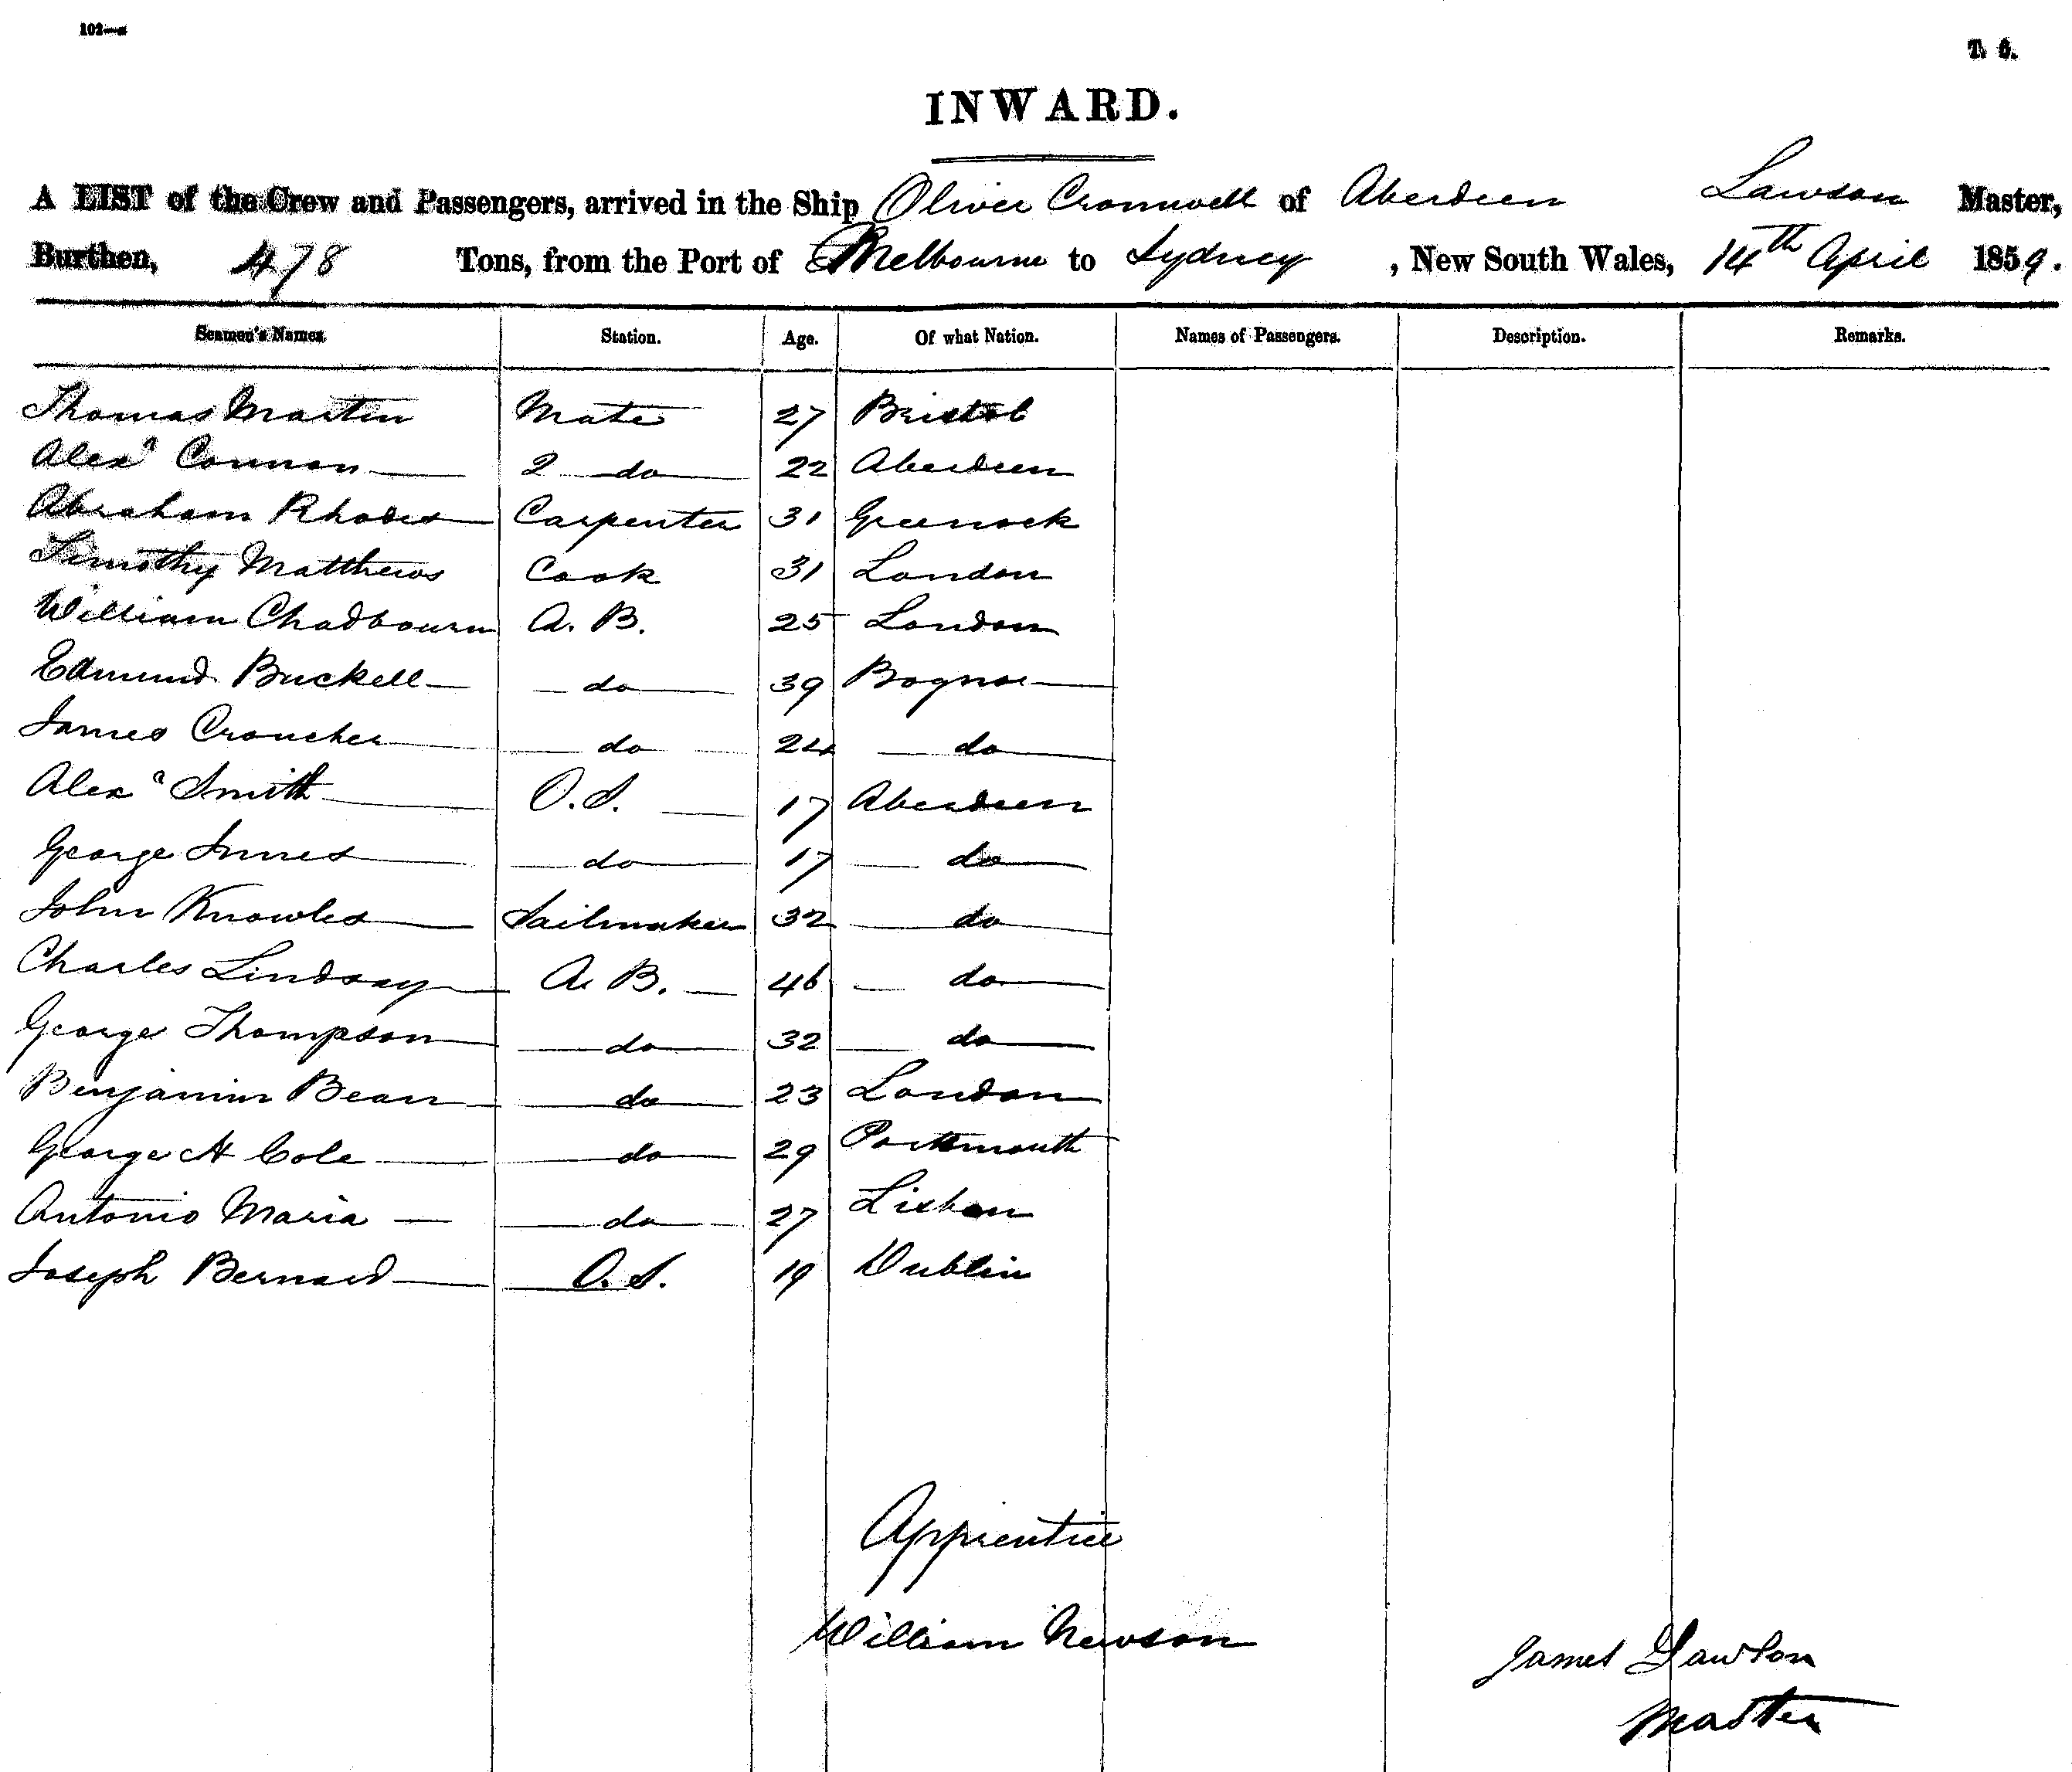 102—a
T. 6.
INWARD.
A LIST of the Crew and Passengers, arrived in the Ship Oliver Cromwell of Aberdeen Lawson Master,
Burthen, 478 Tons, from the Port of Melbourne to Sydney, New South Wales, 14th April 1859.
Seamen's Names. Station. Age. Of what Nation. Names of Passengers. Description. Remarks.
Thomas Martin Mate 27 Bristol
Alexr Connon 2 do 22 Aberdeen
Abraham Rhodes Carpenter 31 Greenock
Timothy Matthews Cook 31 London
William Chadbourn A. B. 25 London
Edmund Buckell do 39 Bognor
James Croucher do 24 do
Alexr Smith O. S. 17 Aberdeen
George Innes do 17 do
John Knowles Sailmaker 32 do
Charles Lindsay A. B. 46 do
George Thompson do 32 do
Benjamin Bean do 23 London
George H Cole do 29 Portsmouth
Antonio Maria do 27 Lisbon
Joseph Bernard O. S. 19 Dublin
Apprentice
William Newson
James Lawson
Master